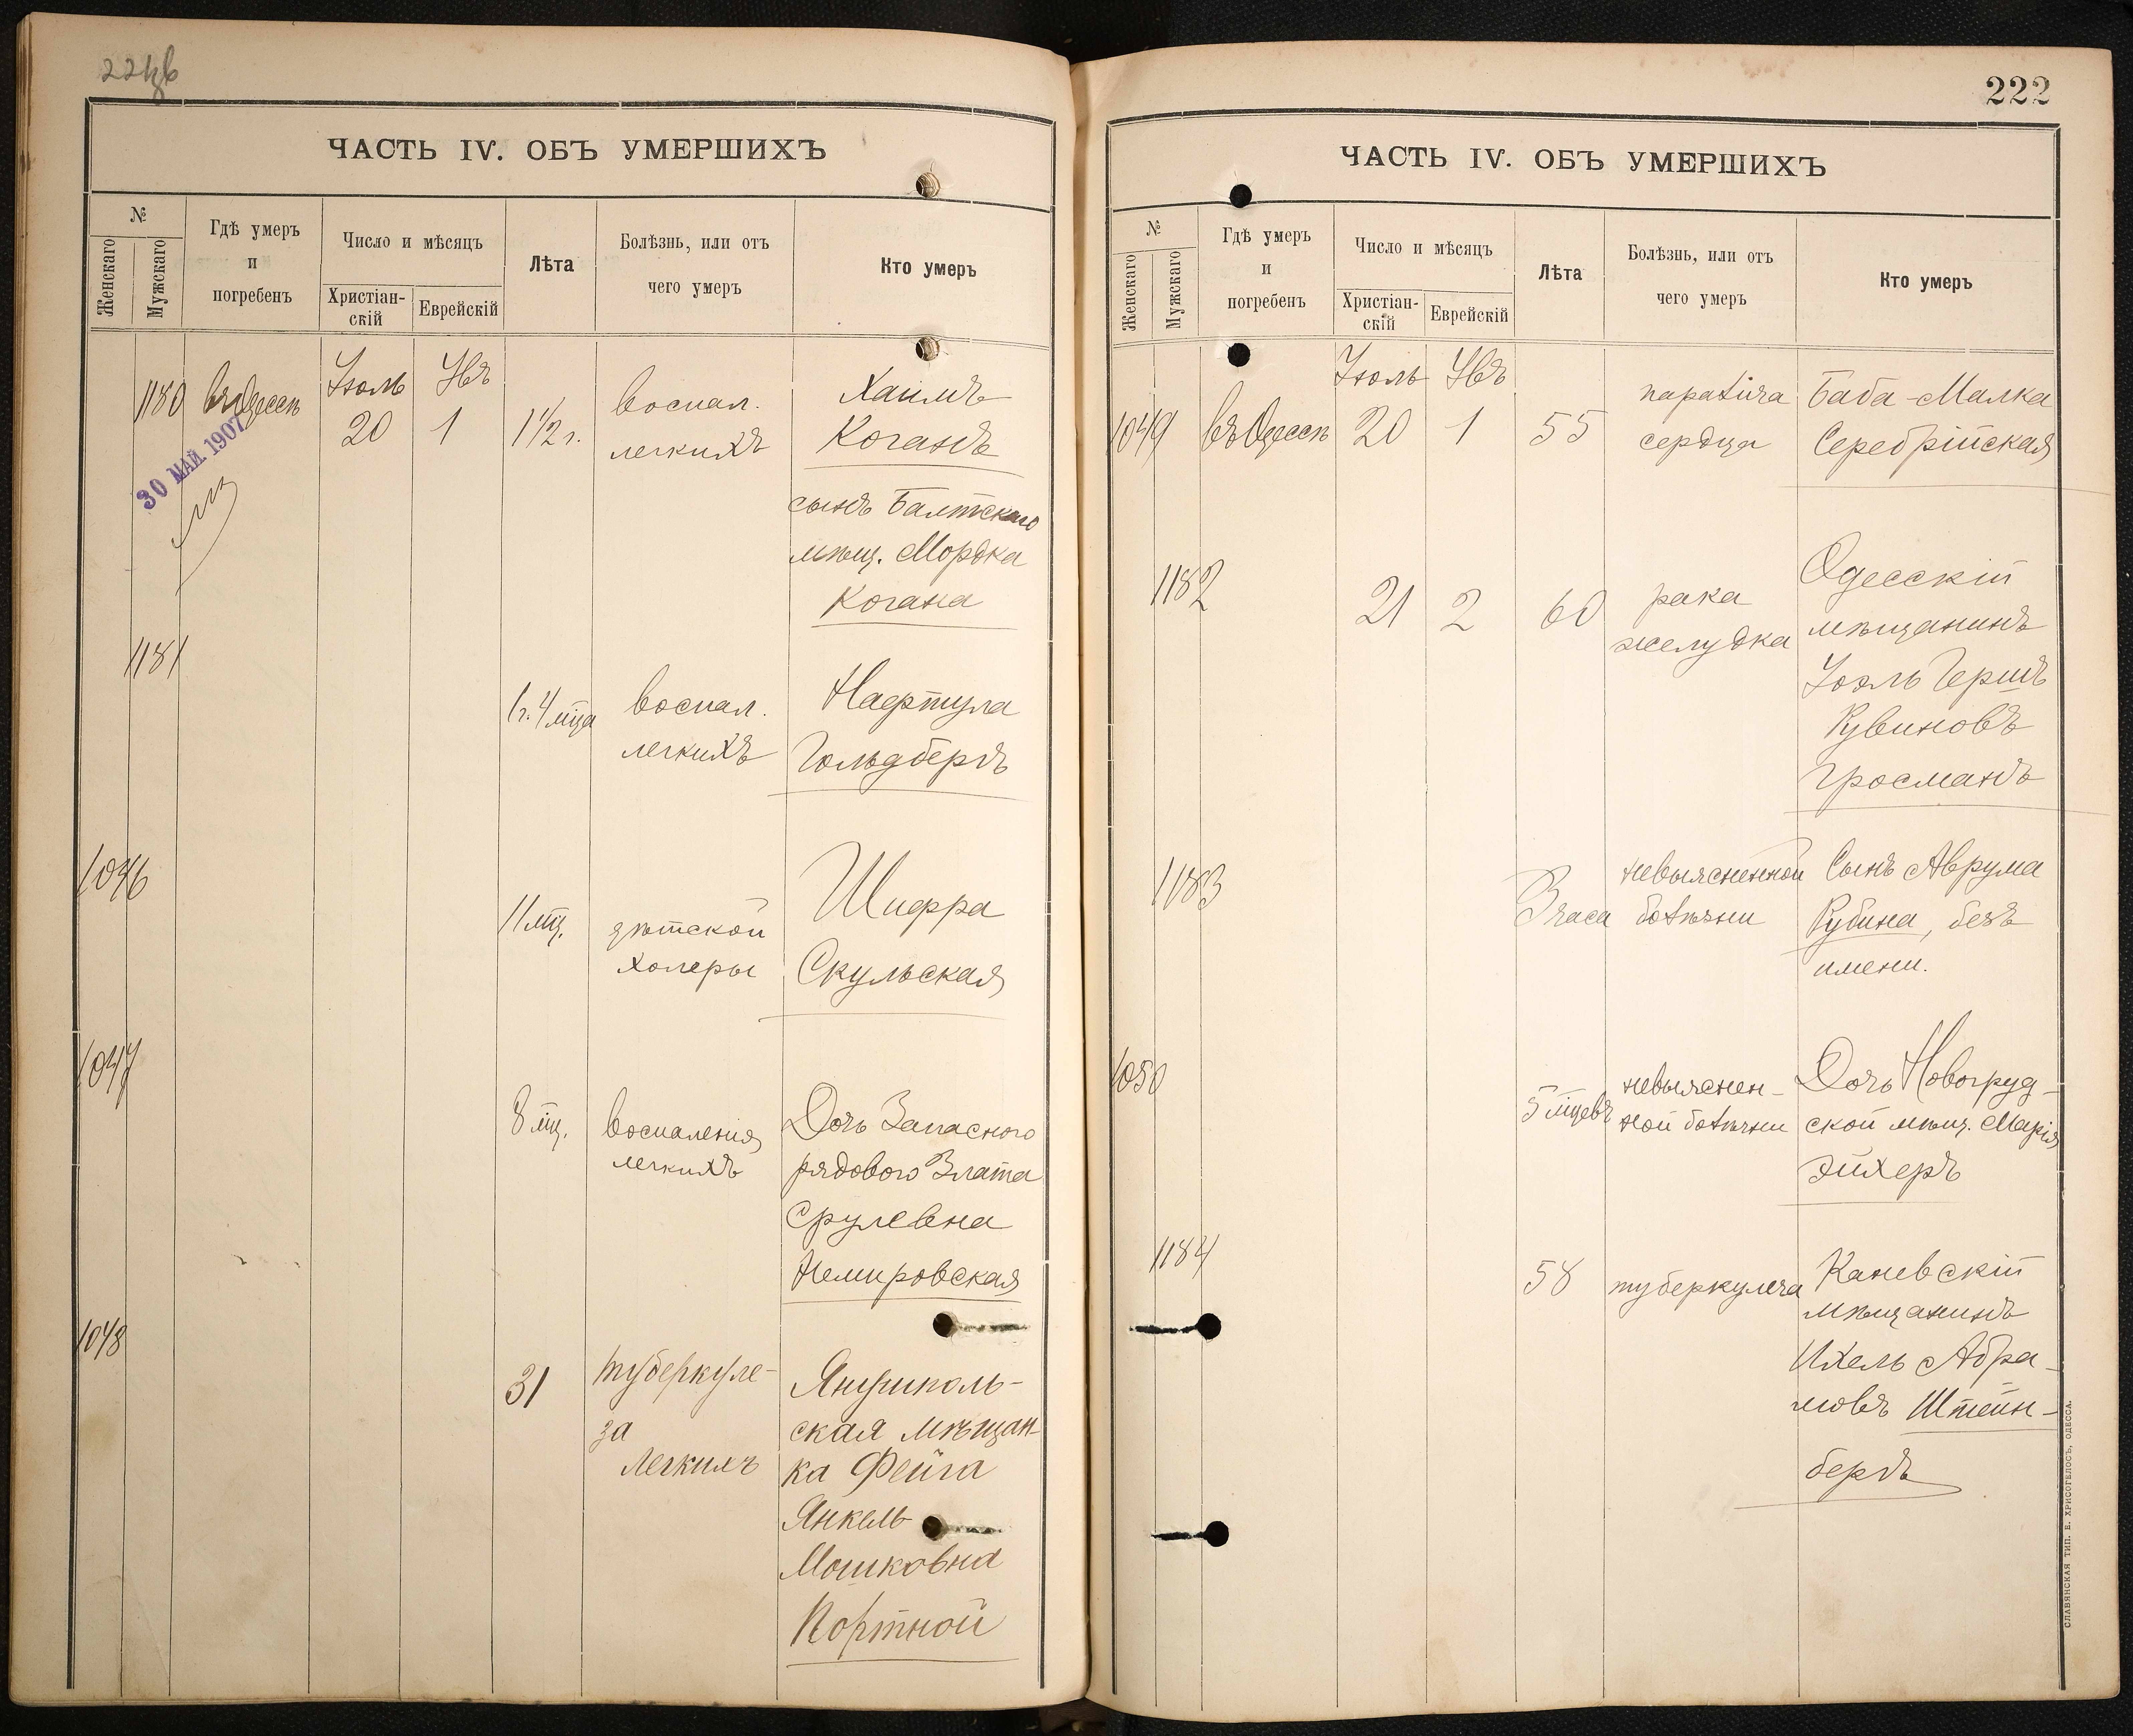 ЧАСТЬ IV. ОБЪ УМЕРШИХЪ
№
Женскаго
Мужскаго
Гдѣ умеръ
и
погребенъ
Число и мѣсяцъ
Христіан-
скій
Еврейскій
Лѣта
Болѣзнь, или отъ
чего умеръ
Кто умеръ
1180 въ Одессѣ Іюль 20 Увъ 1 1 1/2 г.
воспал.
легкихъ
Хаимъ
Коганъ
сынъ Балтскаго
мѣщ. Мордка
Когана
30 МАЙ 1907
1181 1 г. 4 мца
воспал.
легкихъ
Нафтула
Гольдбергъ
1046 11 мц.
дѣтской
холеры
Шифра
Скульская
1047 8 мц.
воспаленія
легкихъ
Дочь Запасного
рядового Злата
Срулевна
Немировская
1048 31
туберкуле-
за
легкихъ
Янушполь-
ская мѣщан-
ка Фейга
Янкель
Мошковна
Портной
222
ЧАСТЬ IV. ОБЪ УМЕРШИХЪ
№
Женскаго
Мужскаго
Гдѣ умеръ
и
погребенъ
Число и мѣсяцъ
Христіан-
скій
Еврейскій
Лѣта
Болѣзнь, или отъ
чего умеръ
Кто умеръ
1049 въ Одессѣ Іюль 20 Увъ 1 55
паралича
сердца
Баба-Малка
Серебрійская
1182 21 2 60
рака
желудка
Одесскій
мѣщанинъ
Іоэль Гершъ
Рувиновъ
Гросманъ
1183 3 часа
невыясненной
болѣзни
Сынъ Аврума
Рубина, безъ
имени.
1050 5 мцевъ
невыяснен-
ной болѣзни
Дочь Новогруд-
ской мѣщ. Марія
Эйхеръ
1184 58
туберкулеза
Каневскій
мѣщанинъ
Ихель Абра-
мовъ Штейн-
бергъ
СЛАВЯНСКАЯ ТИП. Е. ХРИСОГЕЛОСЪ, ОДЕССА.